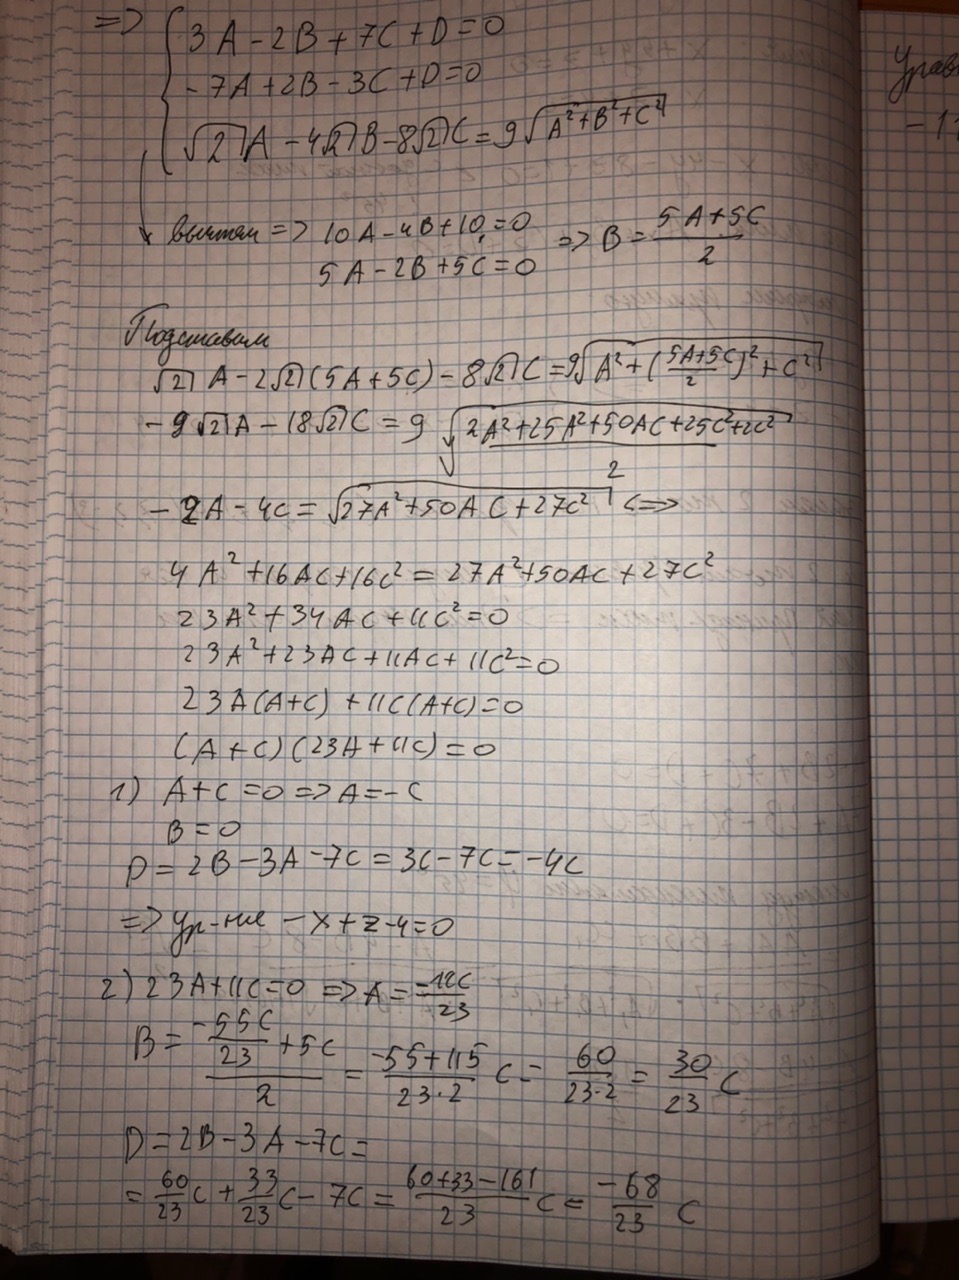 => { 3A - 2B + 7C + D = 0
- 7A + 2B - 3C + D = 0
√2 A - 4√2 B - 8√2 C = 9√(A² + B² + C²)
вычтем => 10A - 4B + 10 = 0 => B = (5A + 5C)/2
5A - 2B + 5C = 0
Подставим
√2 A - 2√2 (5A + 5C) - 8√2 C = 9√(A² + ((5A + 5C)/2)² + C²)
- 9√2 A - 18√2 C = 9 √((2A² + 25A² + 50AC + 25C² + 2C²)/2)
- 2A - 4C = √(27A² + 50AC + 27C²) <=>
4A² + 16AC + 16C² = 27A² + 50AC + 27C²
23A² + 34AC + 11C² = 0
23A² + 23AC + 11AC + 11C² = 0
23A(A+C) + 11C(A+C) = 0
(A+C)(23A + 11C) = 0
1) A + C = 0 => A = - C
B = 0
D = 2B - 3A - 7C = 3C - 7C = - 4C
=> ур-ние - x + z - 4 = 0
2) 23A + 11C = 0 => A = -11C/23
B = (-55C/23 + 5C)/2 = (-55 + 115)/(23·2) C = 60/(23·2) = 30/23 C
D = 2B - 3A - 7C =
= 60/23 C + 33/23 C - 7C = (60 + 33 - 161)/23 C = -68/23 C